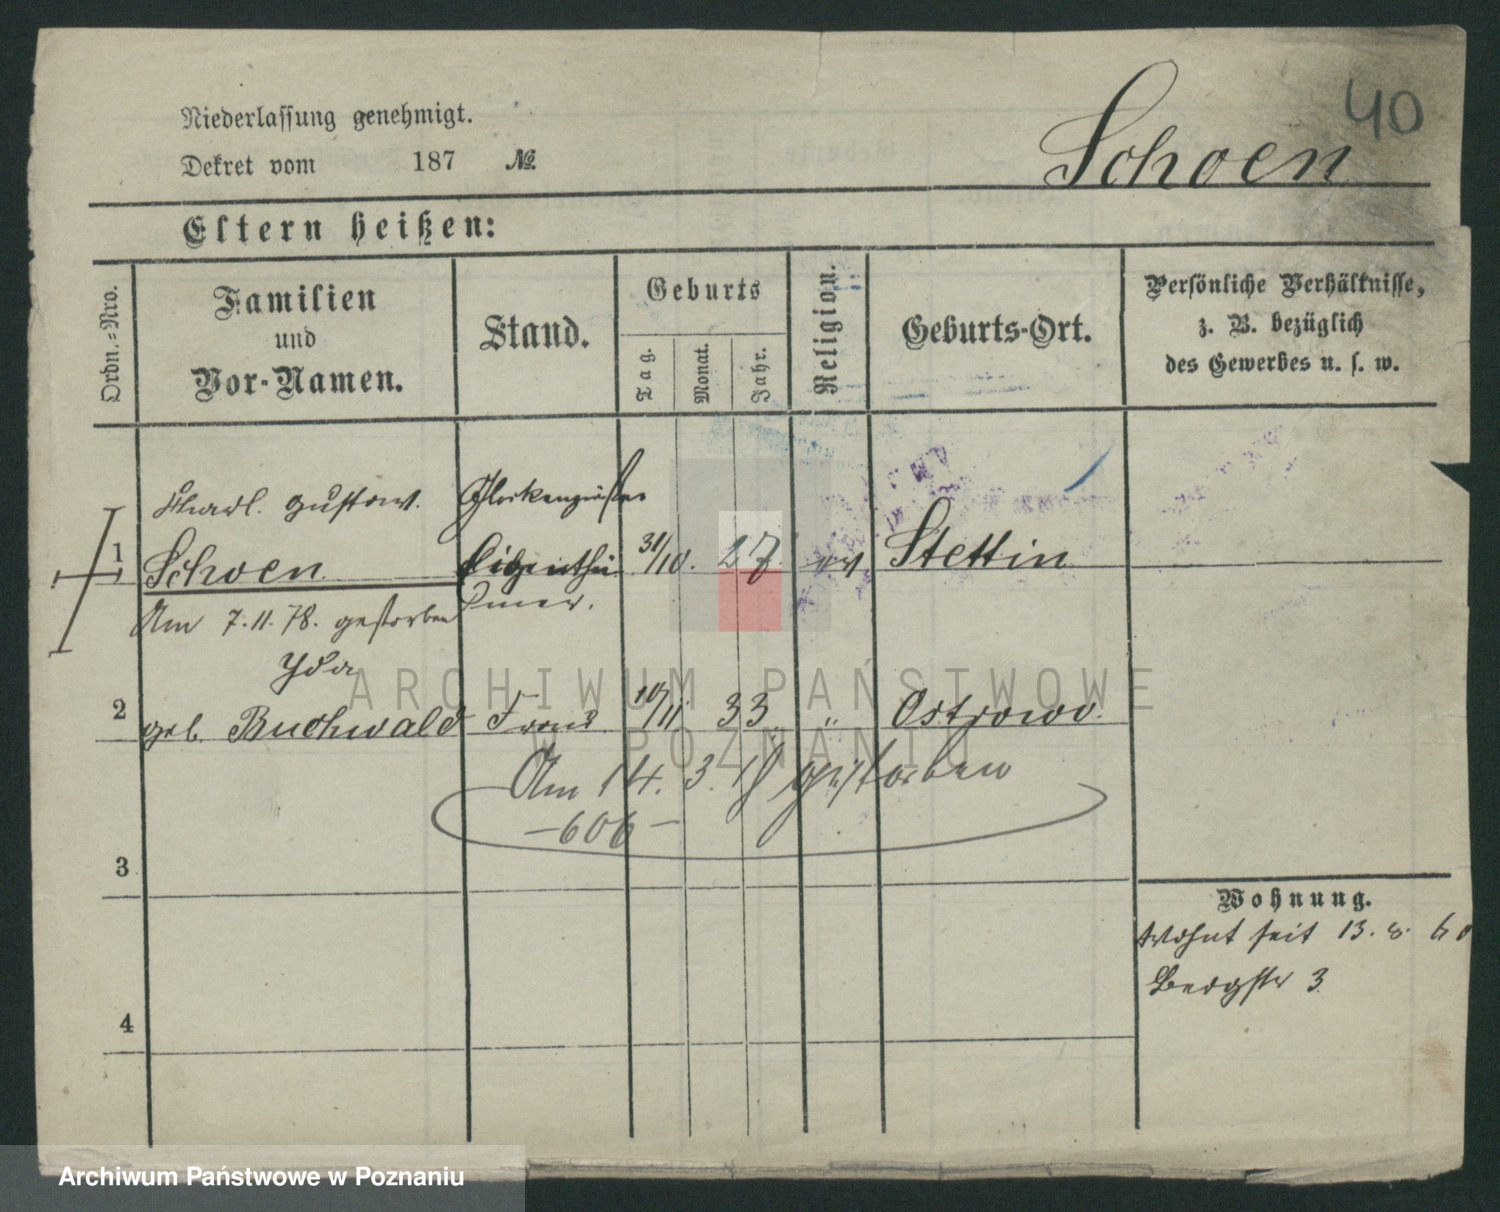 40
Schoen
Niederlassung genehmigt.
Dekret vom 187 №
Eltern heißen:
Ordn.=Nro.
Familien
und
Vor-Namen.
Stand.
Geburts
Tag.
Monat.
Jahr.
Religion.
Geburts-Ort.
Persönliche Verhältnisse,
z. B. bezüglich
des Gewerbes u. s. w.
Carl. Gustav. Glockengießer
1 Schoen Eigenthü 31/10. 27 ev Stettin
Am 7.11.78. gestorben
Ida
2 geb. Buchwald Frau 10/11 33 " Ostrowo.
Am 14. 3. gestorben
-606-
3
Wohnung.
Wohnt seit 13. 8. 60
Bergstr 3
4
ARCHIWUM PAŃSTWOWE
W POZNANIU
Archiwum Państwowe w Poznaniu